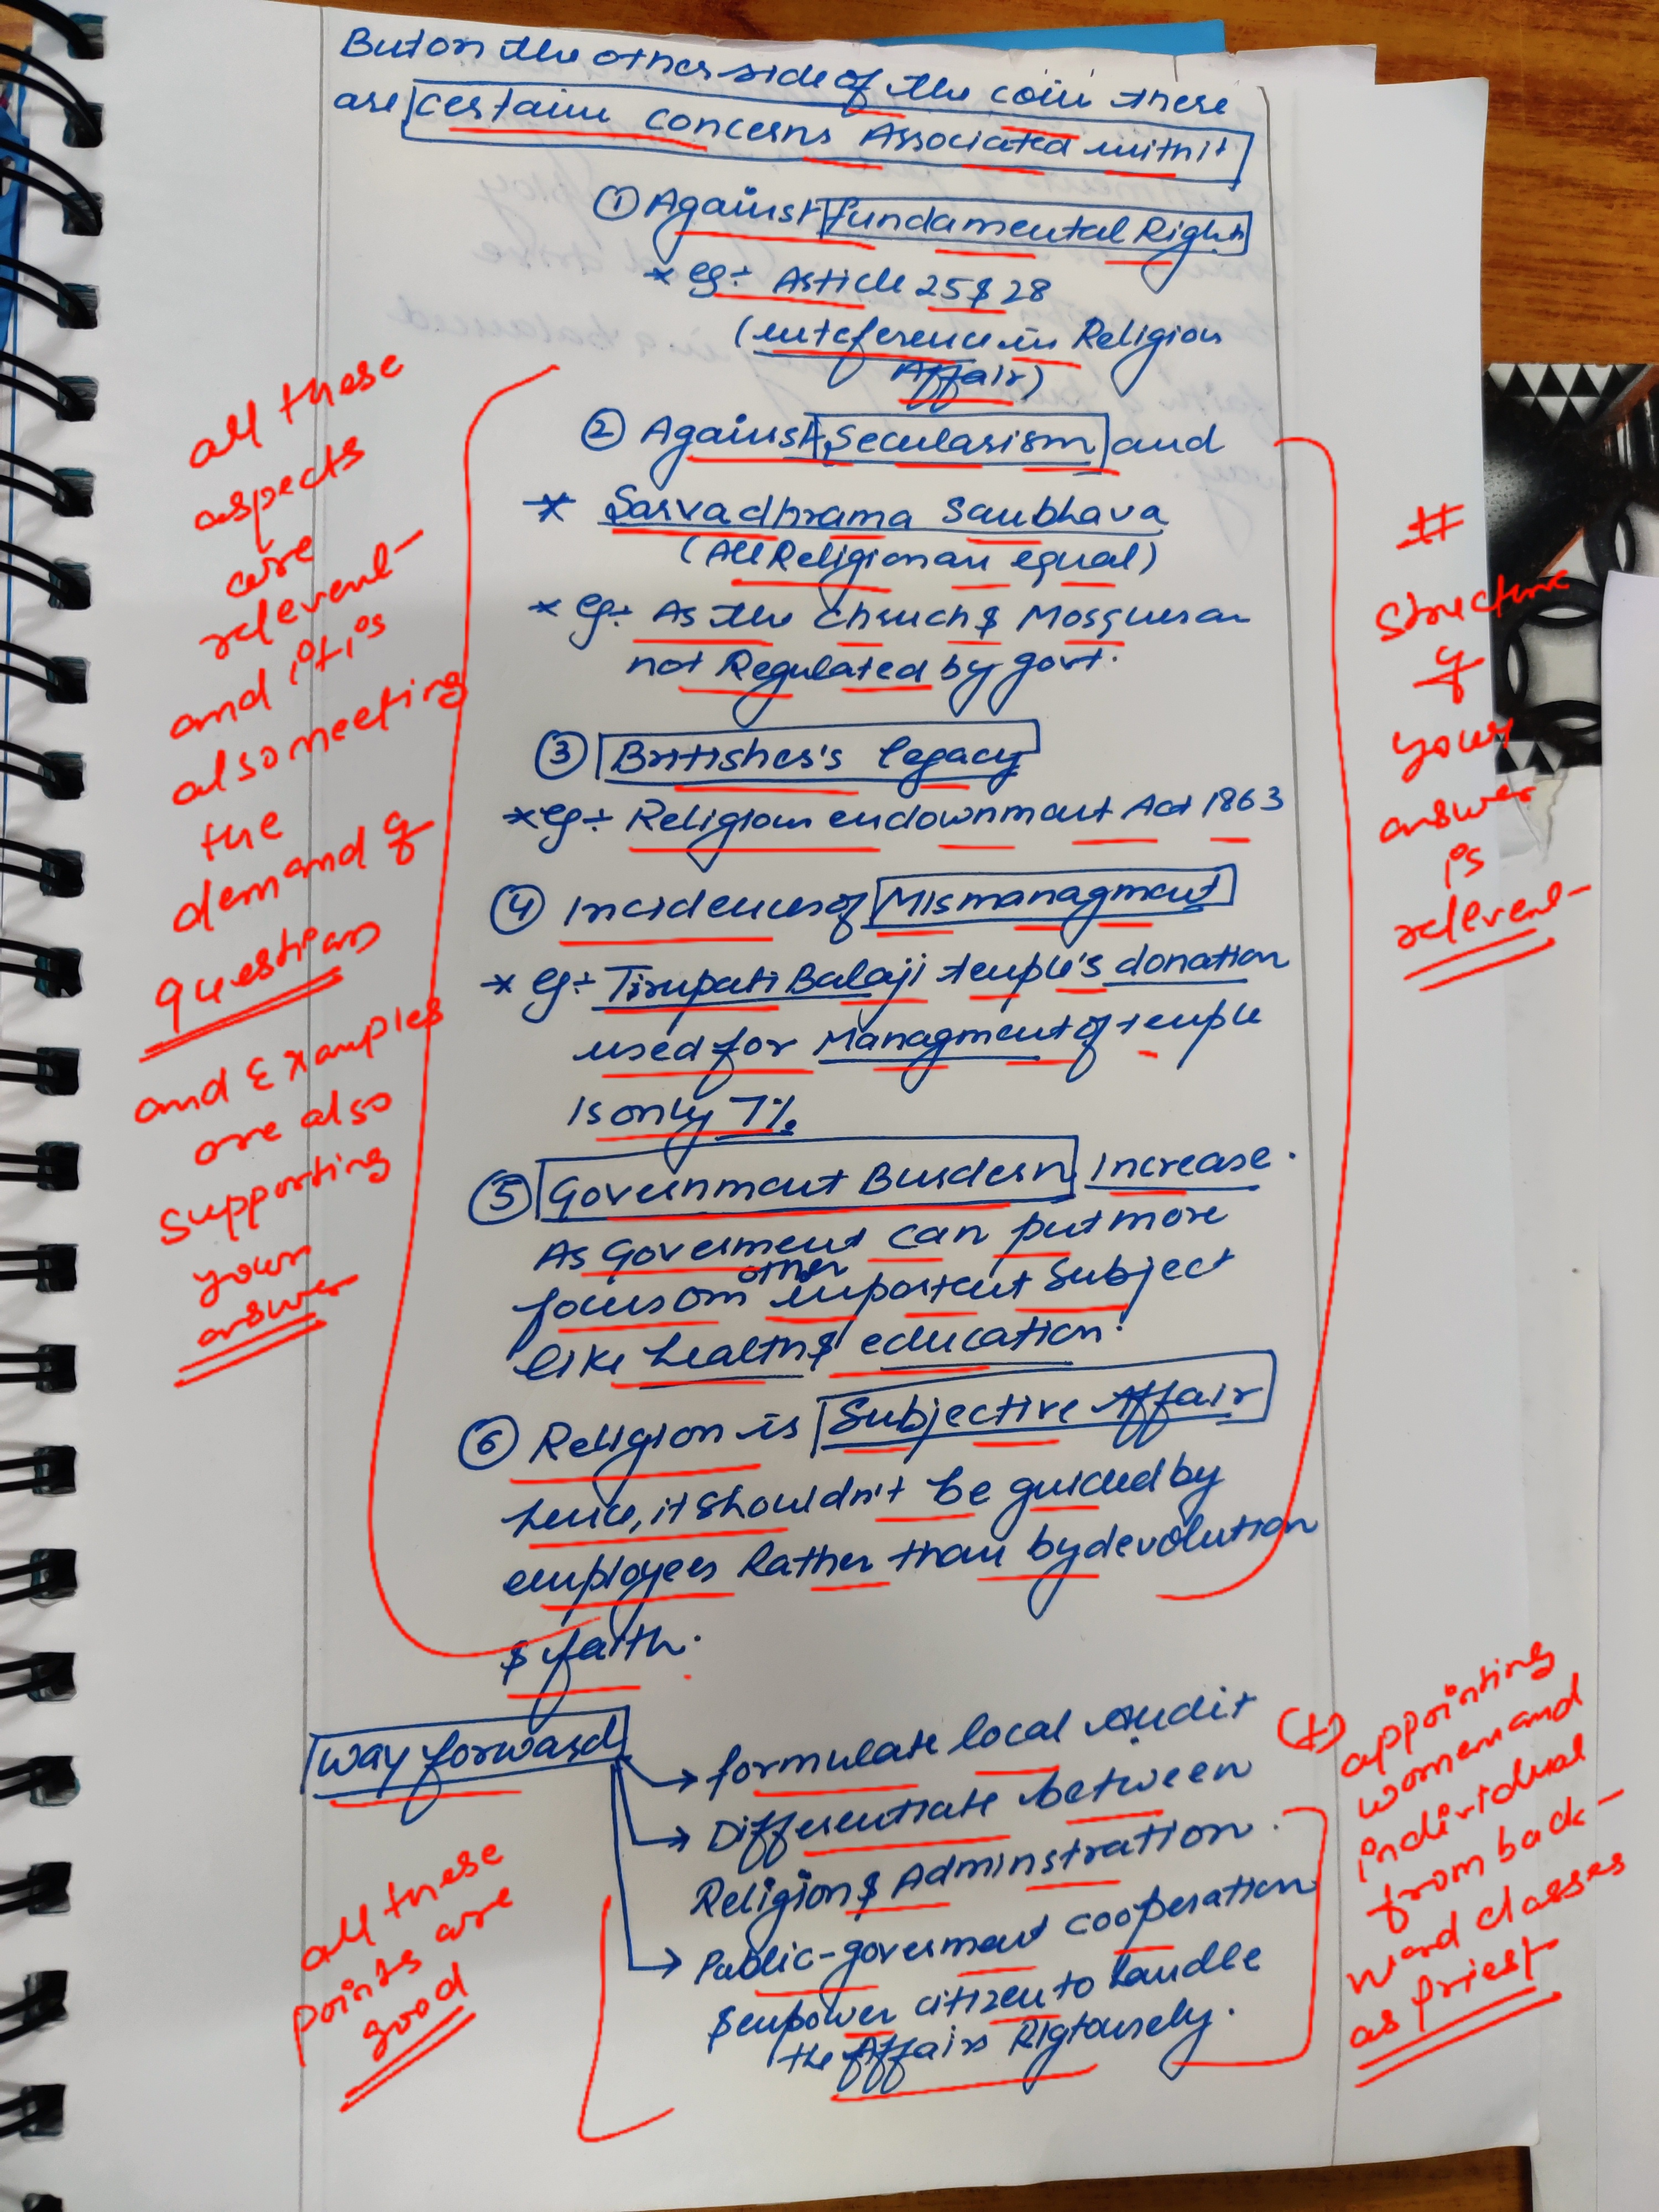 But on the other side of the coin there
are certain concerns Associated with it
① Against fundamental Right
* eg:- Article 25 & 28
(inteference in Religion
Affair)
② Against Secularism and
* Sarvadhrama Saubhava
(All Religion are equal)
* eg:- As the Chruch & Mosques are
not Regulated by govt.
③ Britishers's legacy
* eg:- Religious endownment Act 1863
④ Incidences of Mismanagment
* eg:- Tirupati Balaji temple's donation
used for Managment of temple
is only 7%.
⑤ Government Burdern Increase.
As Goverment can put more
focus on other important Subject
like health & education.
⑥ Religion is Subjective Affair
hence, it shouldn't be guided by
employees Rather than by devolution
& faith.
Way forward
→ formulate local Audit
→ Differentiate between
Religion & Adminstration.
→ Public-goverment cooperation
& empower citizen to handle
the Affairs Rigtously.
all these
aspects
are
relevent
and it is
also meeting
the
demand of
questions
and Examples
are also
supporting
your
answer
#
Structure
of
your
answer
is
relevent
all these
points are
good
(+) appointing
women and
individual
from back-
ward classes
as priest